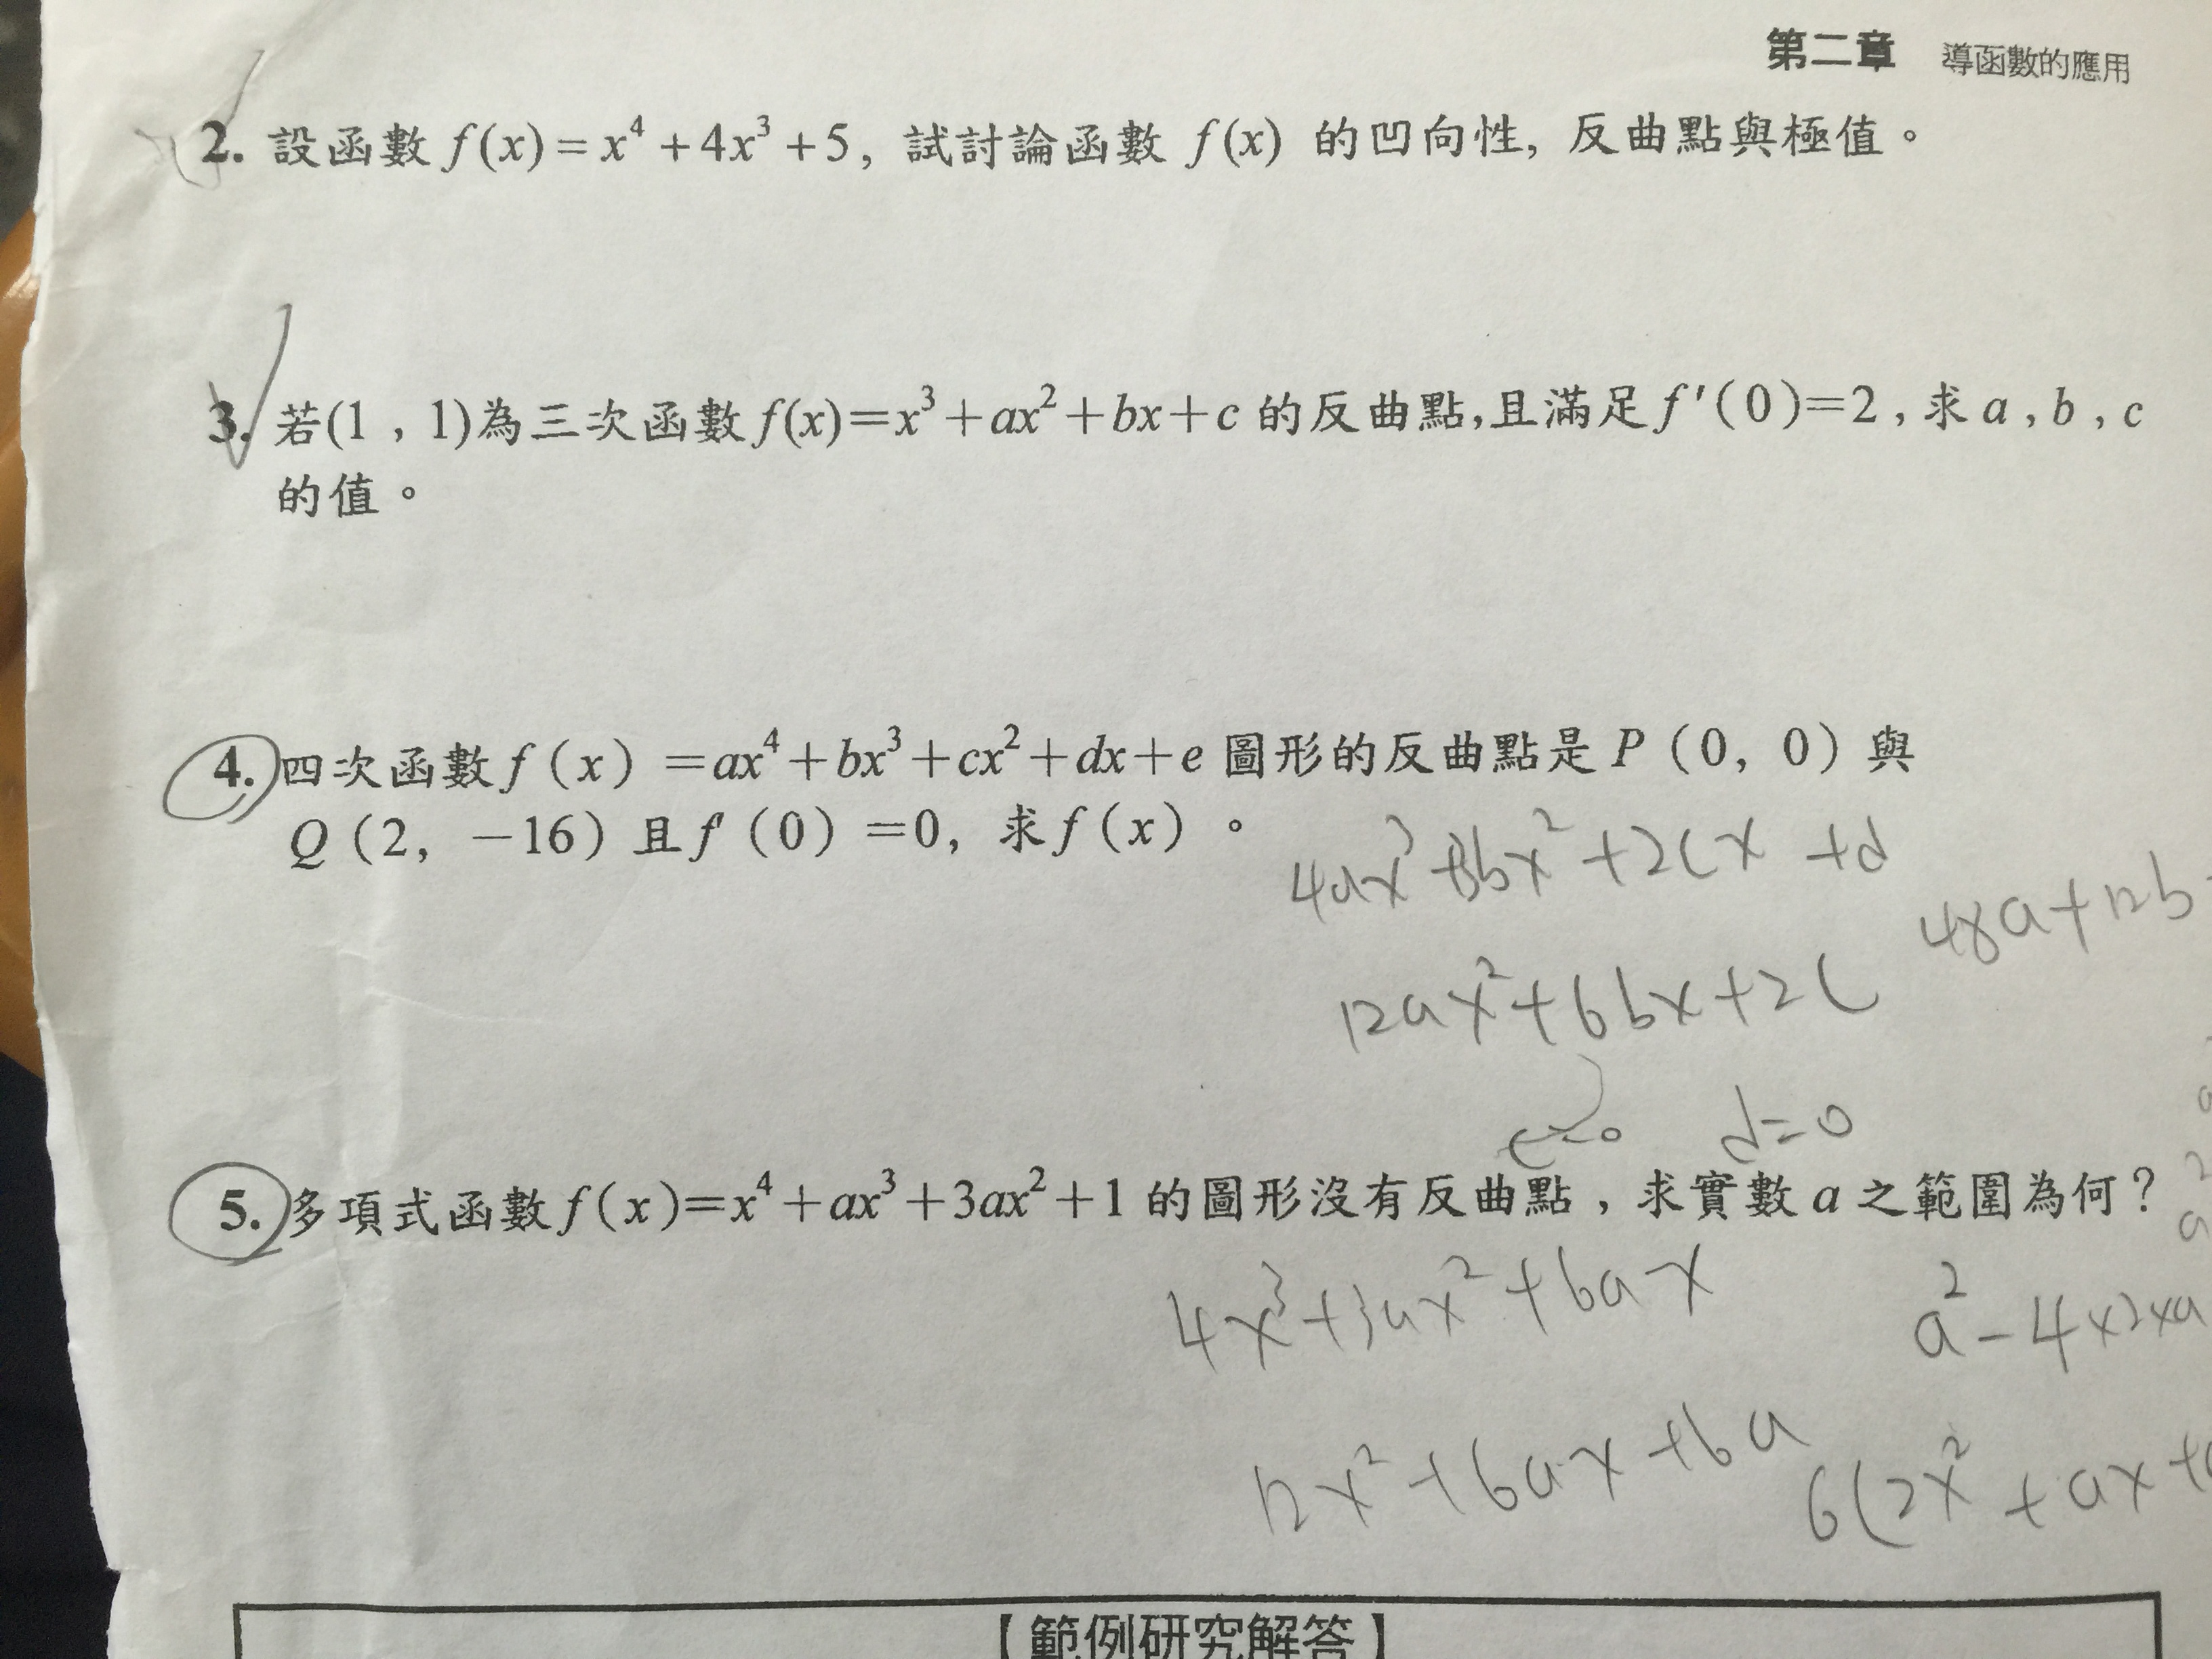 第二章 導函數的應用
2. 設函數 f(x)=x⁴+4x³+5, 試討論函數 f(x) 的凹向性, 反曲點與極值。
3. 若(1,1)為三次函數f(x)=x³+ax²+bx+c的反曲點,且滿足f'(0)=2,求a,b,c
的值。
4. 四次函數f(x)=ax⁴+bx³+cx²+dx+e圖形的反曲點是P(0, 0)與
Q(2, -16)且f'(0)=0, 求f(x)。
4ax³+3bx²+2cx+d
48a+12b
12ax²+6bx+2c
c=0 d=0
5. 多項式函數f(x)=x⁴+ax³+3ax²+1的圖形沒有反曲點,求實數a之範圍為何?
4x³+3ax²+6ax
a²-4x2xa
12x²+6ax+6a
6(2x²+ax+
【範例研究解答】